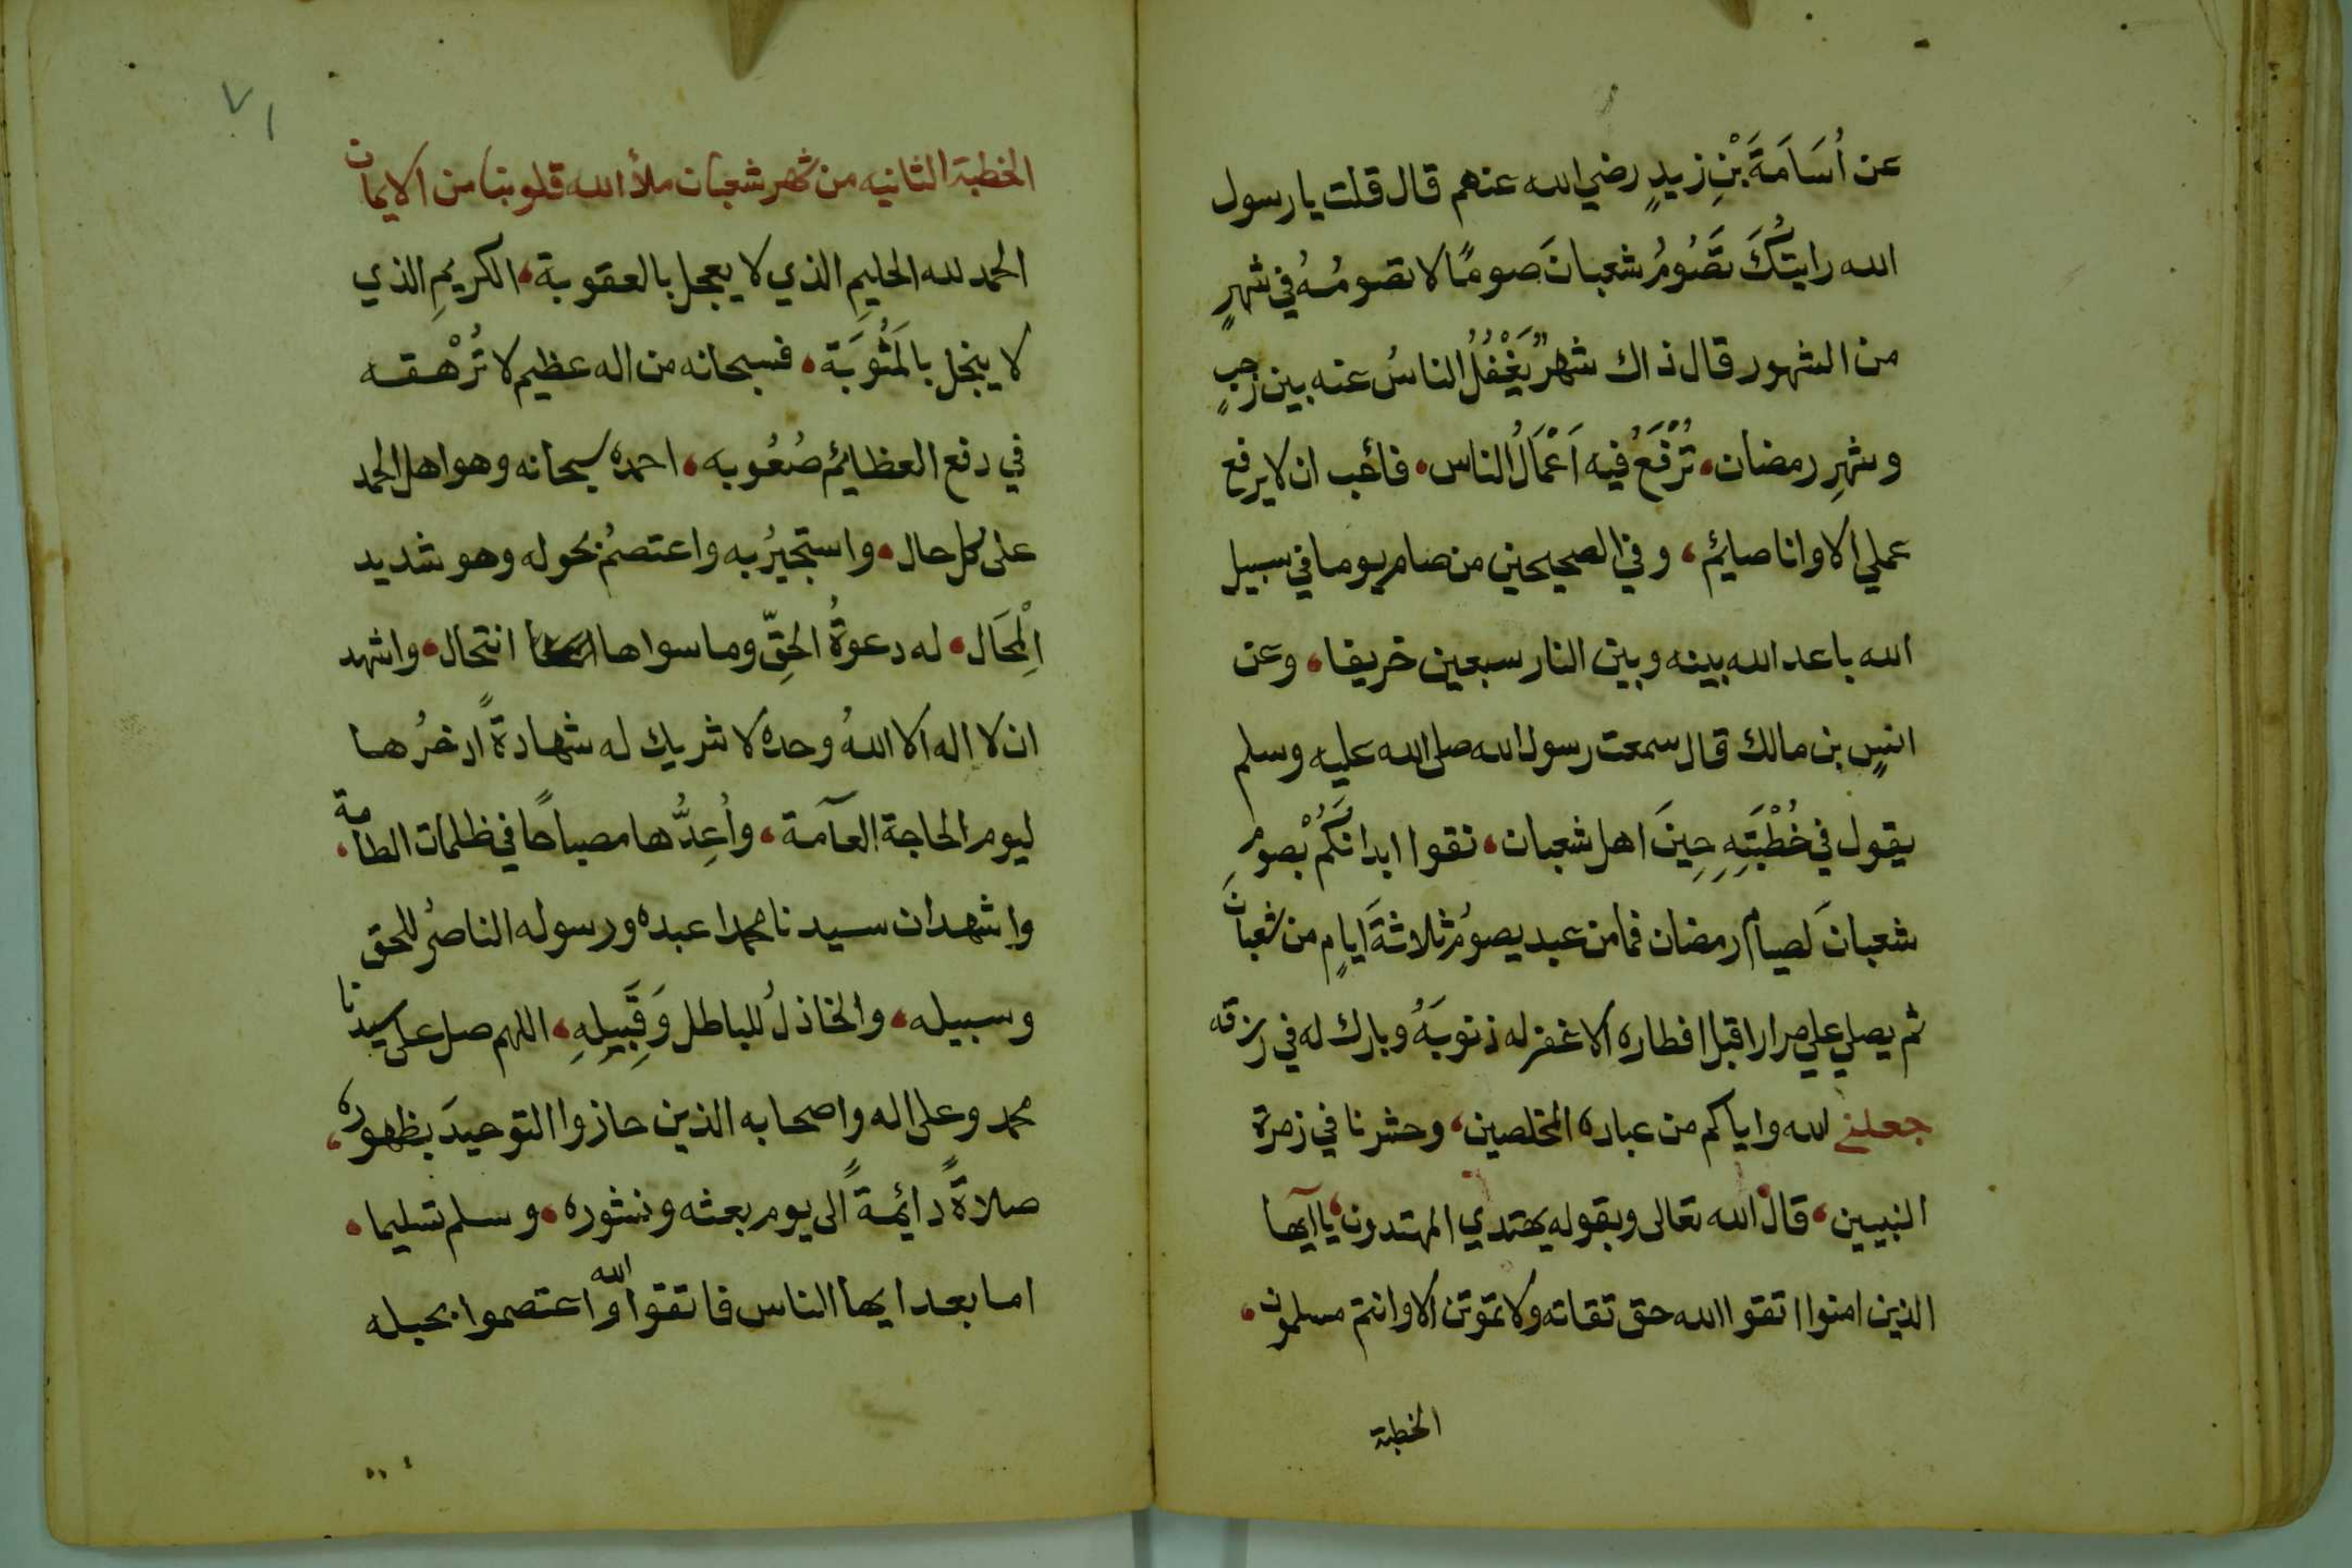 عن اُسَامَةَ بْنِ زيدٍ رضي الله عنهم قال قلت يا رسول
الله رايتُكَ تَصُومُ شعبانَ صومًا لا تصومُهُ في شهرٍ
من الشهور قال ذاك شهرٌ يَغْفُلُ الناسُ عنه بين رجبٍ
وشهرِ رمضان، تُرْفَعُ فيه اَعْمَالُ الناس، فأحب ان لا يرفع
عملي الا وانا صايمٌ، وفي الصحيحين من صام يوما في سبيل
الله باعد الله بينه وبين النار سبعين خريفا، وعن
انسِ بن مالك قال سمعت رسول الله صلى الله عليه وسلم
يقول في خُطْبَتِهِ حِينَ اهل شعبان، نقوا ابدانَكُمْ بصومِ
شعبانَ لصيام رمضان فما من عبد يصومُ ثلاثةَ ايامٍ من شعبانَ
ثم يصلي علي مرارا قبل افطاره الا غفر له ذنوبَهُ وبارك له في رزقه
جعلني الله واياكم من عباده المخلصين، وحشرنا في زمرة
النبيين، قال الله تعالى وبقوله يهتدي المهتدون، يا ايها
الذين امنوا اتقوا الله حق تقاته ولا تموتن الا وانتم مسلمون،
الخطبة
٧١
الخطبة الثانيه من شهر شعبان ملأ الله قلوبنا من الايمان
الحمد لله الحليمِ الذي لا يعجل بالعقوبة، الكريمِ الذي
لا يبخل بالمَثُوبَة، فسبحانه من اله عظيم لا تُرْهقه
في دفع العظائم صُعُوبه، احمده سبحانه وهو اهل الحمد
على كل حال، واستجيرُ به واعتصمُ بحوله وهو شديد
اِلْمحَال، له دعوةُ الحقِّ وما سواها انتحال، واشهد
ان لا اله الا اللهُ وحده لا شريك له شهادةً ادخرُها
ليوم الحاجة العآمة، واُعِدُّها مصباحًا في ظلمات الطامة،
واشهد ان سيدنا محمدا عبده ورسوله الناصرُ للحق
وسبيله، والخاذلُ للباطل وَقَبِيلِهِ، اللهم صل على سيدنا
محمد وعلى اله واصحابه الذين حازوا التوحيدَ بظهوره،
صلاةً دائمةً الى يوم بعثه ونشوره، وسلم تسليما،
اما بعد ايها الناس فاتقوا الله واعتصموا بحبله